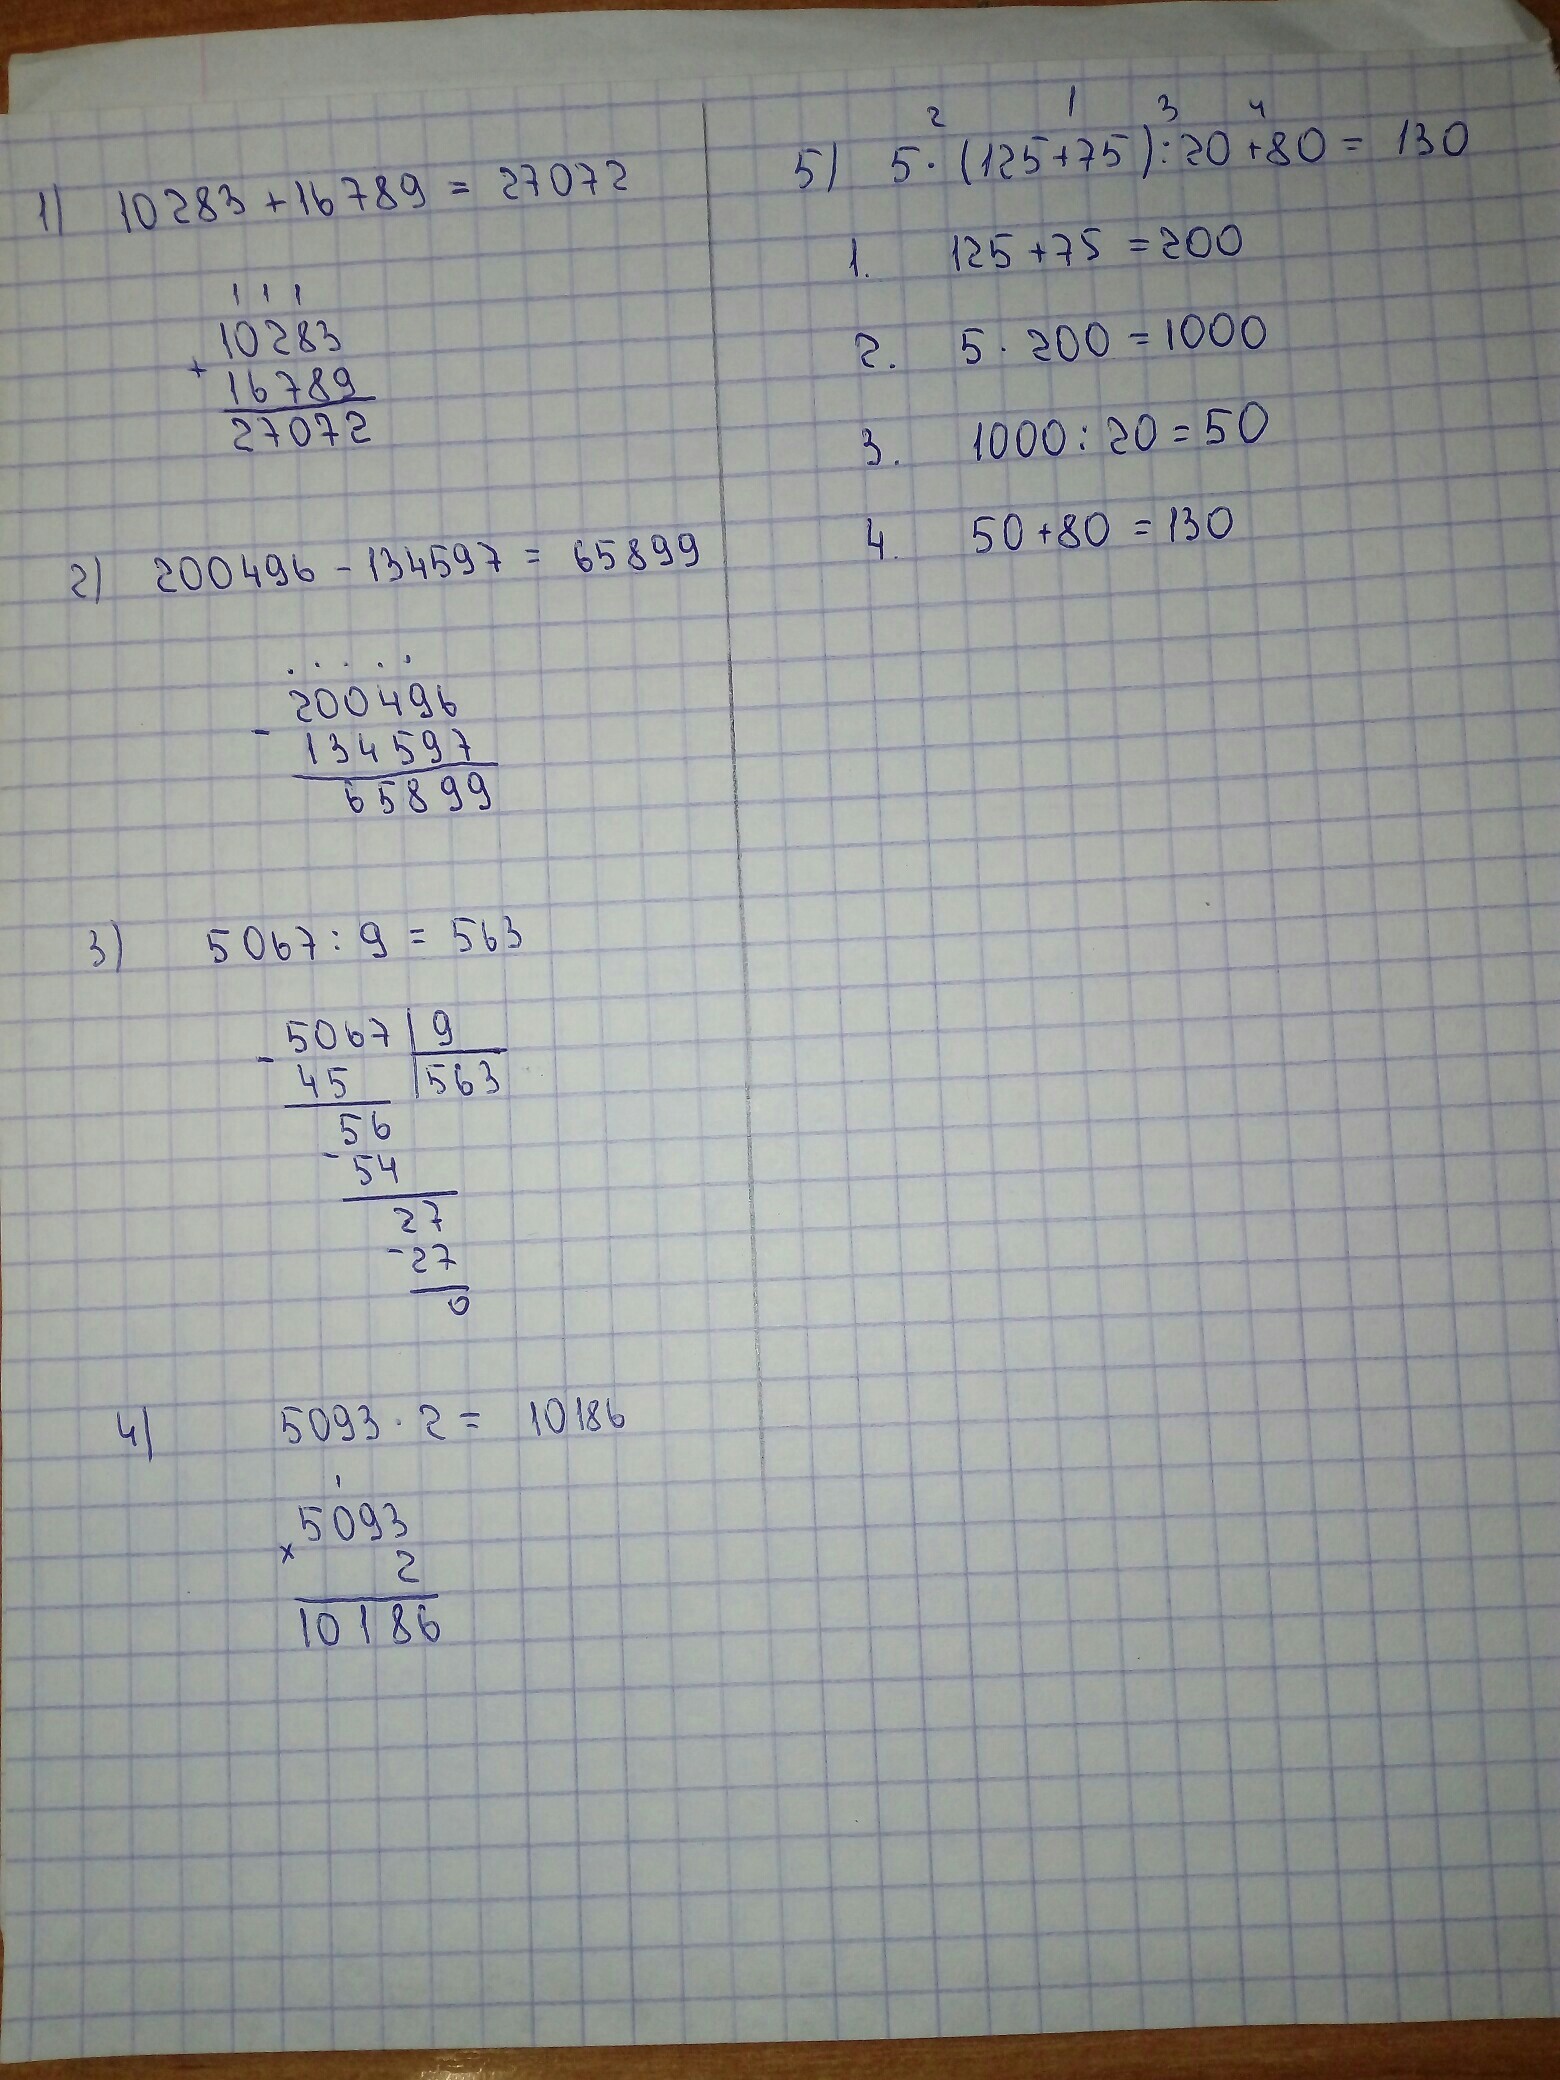 1) 10283+16789 = 27072
1 1 1
10283
+
16789
27072
2) 200496 - 134597 = 65899
. . . . .
200496
-
134597
65899
3) 5067 : 9 = 563
- 5067 | 9
45 | 563
56
- 54
27
- 27
0
4) 5093 · 2 = 10186
1
5093
×
2
10186
2 1 3 4
5) 5 · (125+75) : 20 + 80 = 130
1. 125+75 = 200
2. 5 · 200 = 1000
3. 1000 : 20 = 50
4. 50+80 = 130